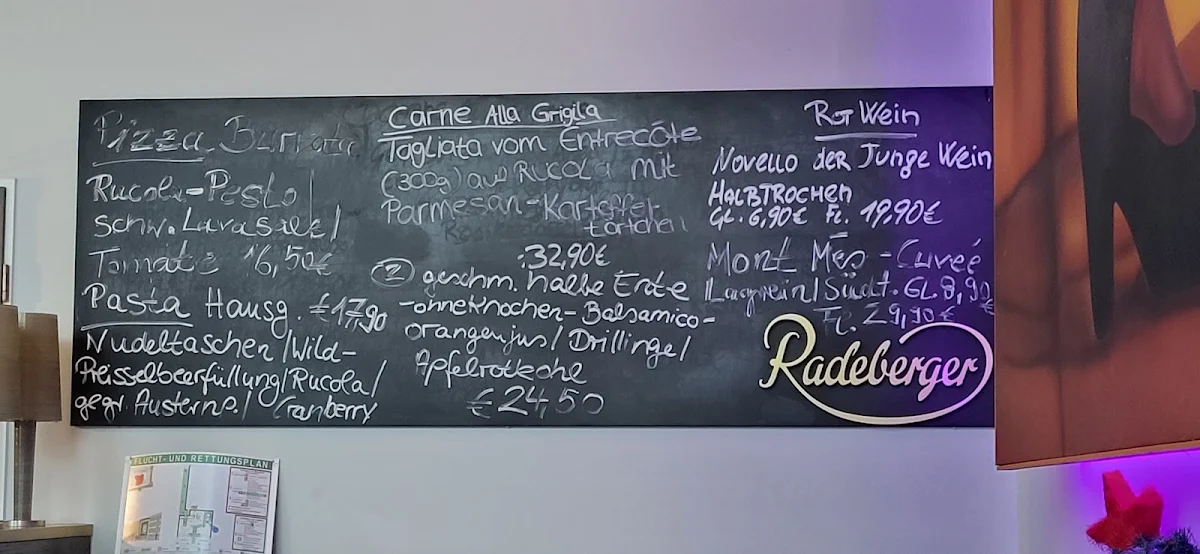 Pizza Burrata
Rucola-Pesto/
schw. Lavasalz/
Tomate 16,50€
Pasta Hausg. €17,90
Nudeltaschen/Wild-
Preisselbeerfüllung/Rucola/
gegr. Austernp./ Cranberry
Carne Alla Grigila
Tagliata vom Entrecôte
(300g) auf Rucola mit
Parmesan-Kartoffel-
törtchen
32,90€
② geschm. halbe Ente
-ohne Knochen- Balsamico-
orangenjus/Drillinge/
Apfelrotkohl
€24,50
Rot Wein
Novello der Junge Wein
HALBTROCHEN
Gl. 6,90€ Fl. 19,90€
Mont Mès - Cuveé
Lagrein/Südt. Gl. 8,90€
Fl. 29,90€
Radeberger
FLUCHT- UND RETTUNGSPLAN